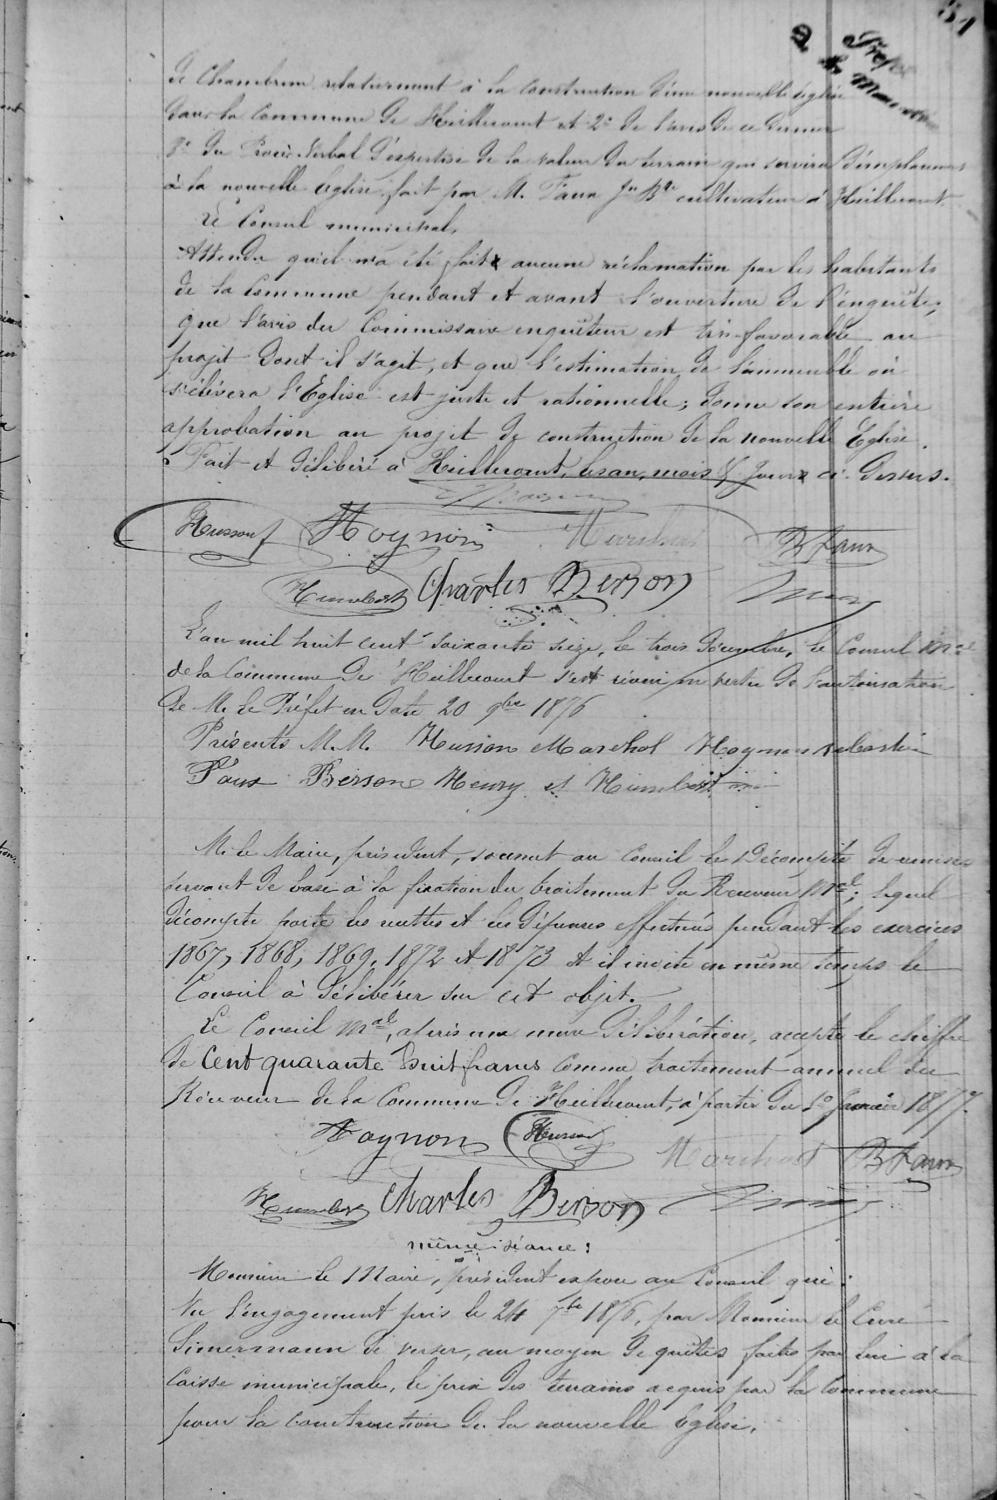 51
de Chambrun relativement à la construction d'une nouvelle église
dans la commune de Heillecourt et 2° de l'avis de ce dernier
3° du Procès Verbal d'expertise de la valeur du terrain qui servira d'emplacement
à la nouvelle Eglise, fait par M. Faux Jn Bte cultivateur à Heillecourt.
Le Conseil municipal,
Attendu qu'il n'a été fait aucune réclamation par les habitants
de la Commune pendant et avant l'ouverture de l'enquête,
que l'avis du Commissaire enquêteur est très-favorable au
projet dont il s'agit, et que l'estimation de l'immeuble où
s'élèvera l'Eglise est juste et rationnelle; donne son entière
approbation au projet de construction de la nouvelle Eglise.
Fait et délibéré à Heillecourt, les an, mois & jour ci-dessus.
Husson Hoynon Marchal B Faux
Humbert Charles Berson
L'an mil huit cent soixante seize, le trois décembre, le Conseil Mal
de la Commune de Heillecourt s'est réuni en vertu de l'autorisation
de M. le Préfet en date 20 9bre 1876
Présents M.M. Husson Marchal Hoynon Sébastien
Faux Berson Henry et Humbert
M. le Maire, président, soumet au Conseil le Décompte de remises
servant de base à la fixation du traitement du Receveur Mal; lequel
décompte porte les recettes et les dépenses effectuées pendant les exercices
1867, 1868, 1869, 1872 et 1873 et il invite en même temps le
Conseil à délibérer sur cet objet.
Le Conseil Mal, après une mure délibération, accepte le chiffre
de Cent quarante huit francs comme traitement annuel du
Receveur de la Commune de Heillecourt, à partir du 1er Janvier 1877.
Hoynon Husson Marchal B Faux
Humbert Charles Berson
même séance:
Monsieur le Maire, président expose au Conseil que:
Vu l'engagement pris le 24 7bre 1876, par Monsieur le Curé
Simermann de verser, au moyen de quêtes faites par lui à la
Caisse municipale, le prix des terrains acquis par la Commune
pour la construction de la nouvelle Eglise,